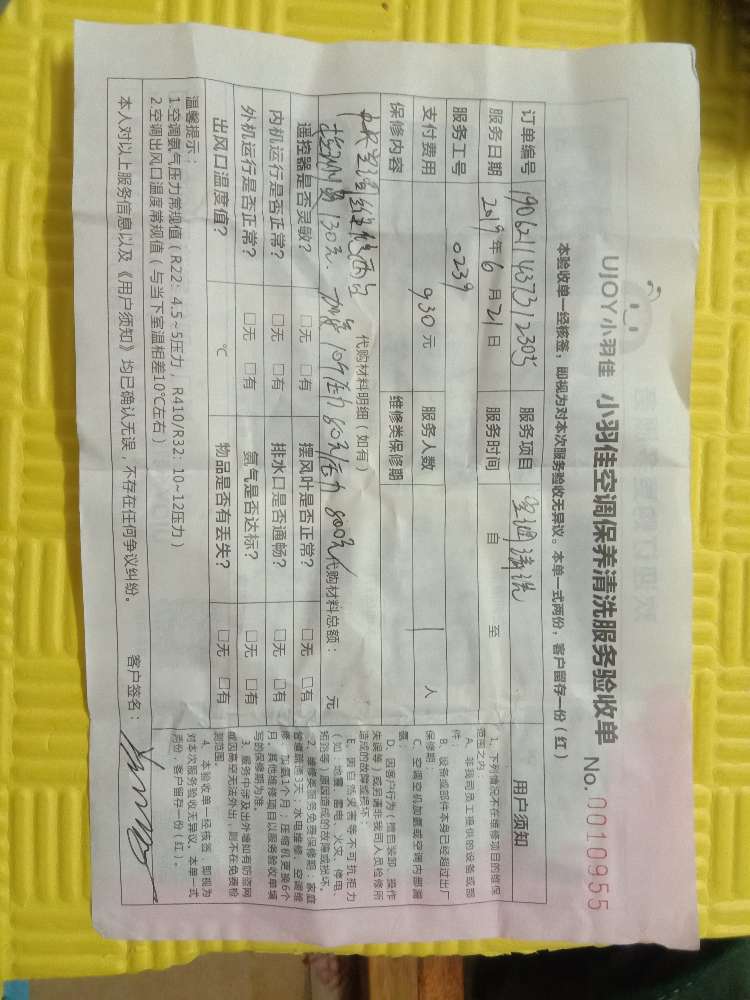 UJOY小羽佳 小羽佳空调保养清洗服务验收单 No.0010955
本验收单一经核签，即视为对本次服务验收无异议。本单一式两份，客户留存一份（红）
订单编号 服务项目 空调清洗
服务日期 2019年6月21日 服务时间 自 至
服务工号 0239
支付费用 930元 服务人数 1 人
保修内容 维修类保修期
代购材料明细（如有）
130元. 800元 代购材料总额： 元
遥控器是否灵敏？ □无 □有 摆风叶是否正常？ □无 □有
内机运行是否正常？ □无 □有 排水口是否通畅？ □无 □有
外机运行是否正常？ □无 □有 氨气是否达标？ □无 □有
出风口温度值？ ℃ 物品是否有丢失？ □无 □有
温馨提示：
1.空调氨气压力常规值（R22：4.5~5压力，R410/R32：10~12压力）
2.空调出风口温度常规值（与当下室温相差10℃左右）
本人对以上服务信息以及《用户须知》均已确认无误，不存在任何争议纠纷。 客户签名：
用户须知
1、下列情况不在维修项目的维保范围之内：
A、非我司员工提供的设备或部件；
B、设备或部件本身已经超过出厂保修期；
C、空调空机加氨或空调内部漏氨；
D、因客户行为（擅自装卸、操作失误等）或另请非我司人员检修所造成的故障或损坏；
E、因自然灾害等不可抗拒力（如：地震、雷电、火灾、停电、拓线等）原因造成的故障或损坏。
2、维修类服务免费保修期：家庭管道疏通3天；水电维修、空调维修、加氨1个月；压缩机更换6个月。其他维修项目以服务验收单填写的保修期为准。
3、服务中涉及出外墙如有防盗网或因高空无法外出，则不在免费检测范围。
4、本验收单一经核签，即视为对本次服务验收无异议。本单一式两份，客户留存一份（红）。